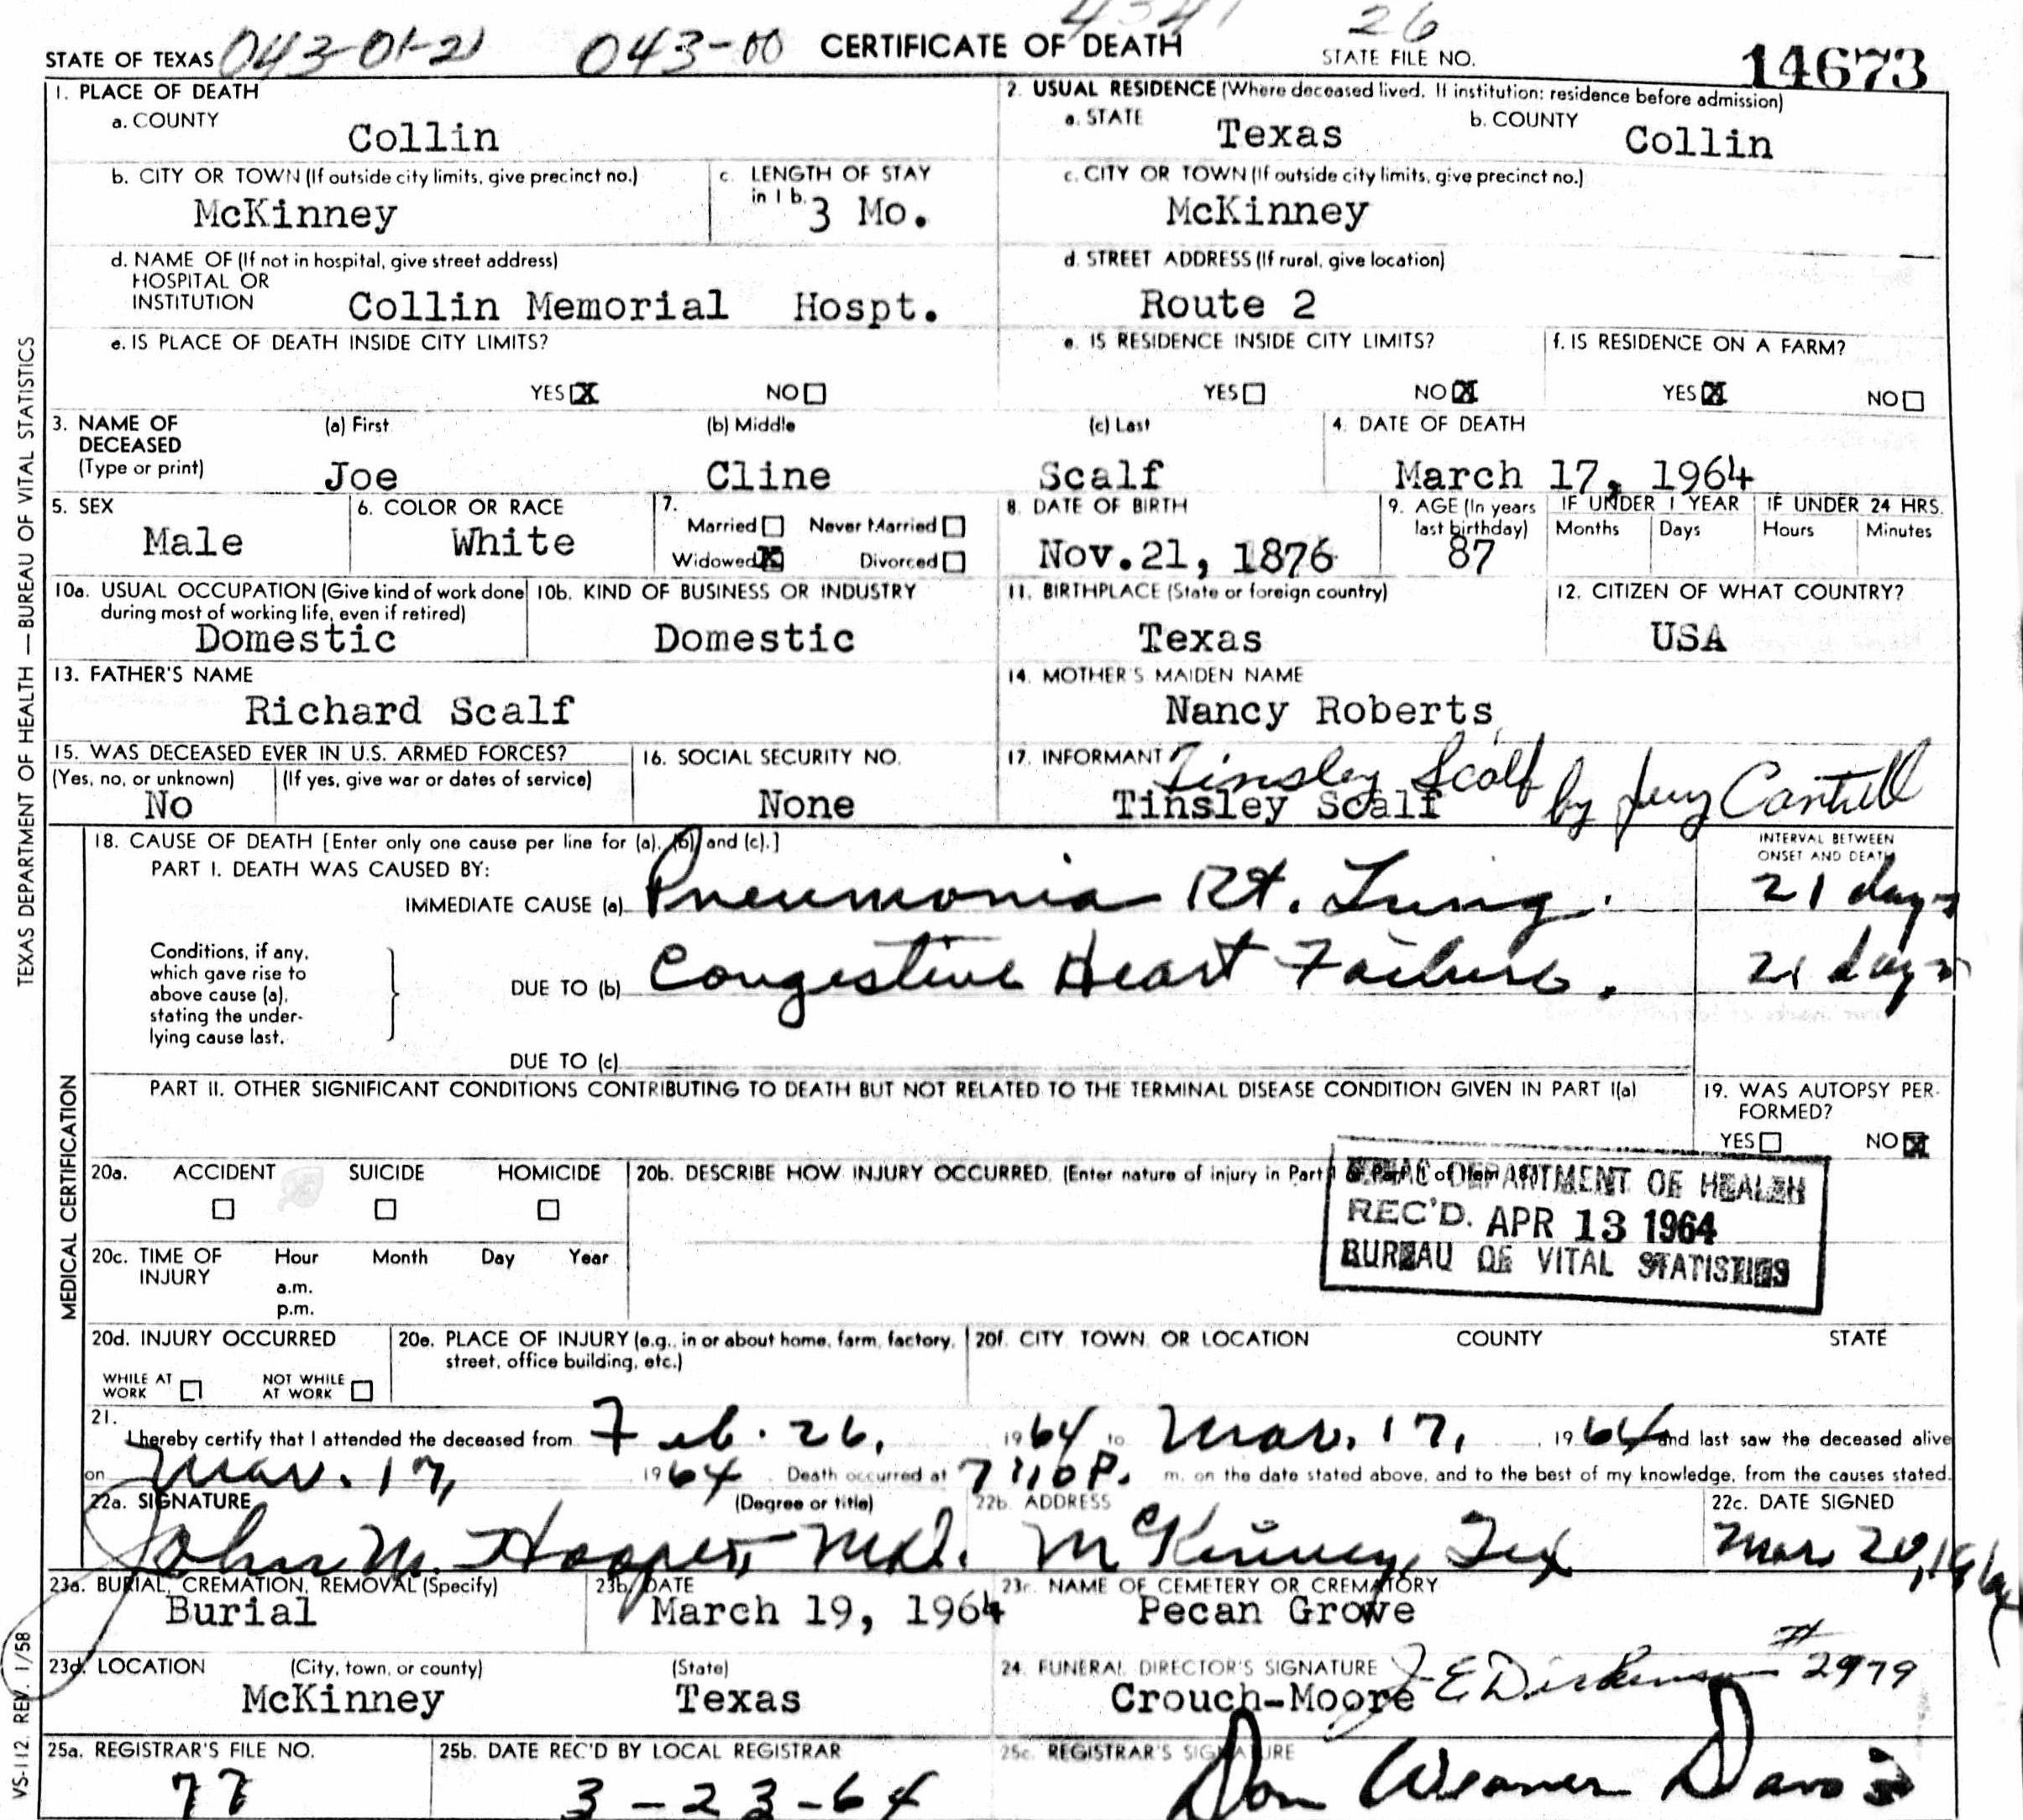 26
STATE OF TEXAS 043-01-21 043-00 CERTIFICATE OF DEATH STATE FILE NO. 14673
1. PLACE OF DEATH
a. COUNTY
Collin
2. USUAL RESIDENCE (Where deceased lived. If institution: residence before admission)
a. STATE Texas b. COUNTY Collin
b. CITY OR TOWN (If outside city limits, give precinct no.)
McKinney
c. LENGTH OF STAY
in 1 b. 3 Mo.
c. CITY OR TOWN (If outside city limits, give precinct no.)
McKinney
d. NAME OF (If not in hospital, give street address)
HOSPITAL OR
INSTITUTION Collin Memorial Hospt.
d. STREET ADDRESS (If rural, give location)
Route 2
e. IS PLACE OF DEATH INSIDE CITY LIMITS?
YES X NO
e. IS RESIDENCE INSIDE CITY LIMITS?
YES NO X
f. IS RESIDENCE ON A FARM?
YES X NO
3. NAME OF
DECEASED
(Type or print)
(a) First (b) Middle (c) Last
Joe Cline Scalf
4. DATE OF DEATH
March 17, 1964
5. SEX
Male
6. COLOR OR RACE
White
7.
Married Never Married
Widowed X Divorced
8. DATE OF BIRTH
Nov.21, 1876
9. AGE (In years
last birthday)
87
IF UNDER 1 YEAR
Months Days
IF UNDER 24 HRS.
Hours Minutes
10a. USUAL OCCUPATION (Give kind of work done
during most of working life, even if retired)
Domestic
10b. KIND OF BUSINESS OR INDUSTRY
Domestic
11. BIRTHPLACE (State or foreign country)
Texas
12. CITIZEN OF WHAT COUNTRY?
USA
13. FATHER'S NAME
Richard Scalf
14. MOTHER'S MAIDEN NAME
Nancy Roberts
15. WAS DECEASED EVER IN U.S. ARMED FORCES?
(Yes, no, or unknown) (If yes, give war or dates of service)
No
16. SOCIAL SECURITY NO.
None
17. INFORMANT Tinsley Scalf by Jerry Cantrell
Tinsley Scalf
18. CAUSE OF DEATH [Enter only one cause per line for (a), (b) and (c).]
INTERVAL BETWEEN
ONSET AND DEATH
PART I. DEATH WAS CAUSED BY:
IMMEDIATE CAUSE (a) Pneumonia Rt. Lung. 21 days
Conditions, if any,
which gave rise to
above cause (a),
stating the under-
lying cause last.
DUE TO (b) Congestive Heart Failure. 21 days
DUE TO (c)
PART II. OTHER SIGNIFICANT CONDITIONS CONTRIBUTING TO DEATH BUT NOT RELATED TO THE TERMINAL DISEASE CONDITION GIVEN IN PART I(a)
19. WAS AUTOPSY PER-
FORMED?
YES NO X
20a. ACCIDENT SUICIDE HOMICIDE
20b. DESCRIBE HOW INJURY OCCURRED. (Enter nature of injury in Part
DEPARTMENT OF HEALTH
REC'D. APR 13 1964
BUREAU OF VITAL STATISTICS
20c. TIME OF
INJURY
Hour Month Day Year
a.m.
p.m.
20d. INJURY OCCURRED
WHILE AT
WORK
NOT WHILE
AT WORK
20e. PLACE OF INJURY (e.g., in or about home, farm, factory,
street, office building, etc.)
20f. CITY, TOWN, OR LOCATION COUNTY STATE
21.
I hereby certify that I attended the deceased from Feb. 26, 1964 to Mar. 17, 1964 and last saw the deceased alive
on Mar. 17, 1964. Death occurred at 7:10 P. m. on the date stated above, and to the best of my knowledge, from the causes stated.
22a. SIGNATURE (Degree or title)
John M. Hooper, M.D.
22b. ADDRESS
McKinney, Tex
22c. DATE SIGNED
Mar. 20, 1964
23a. BURIAL, CREMATION, REMOVAL (Specify)
Burial
23b. DATE
March 19, 1964
23c. NAME OF CEMETERY OR CREMATORY
Pecan Growe
23d. LOCATION (City, town, or county) (State)
McKinney Texas
24. FUNERAL DIRECTOR'S SIGNATURE
Crouch-Moore J E Dickenson #2979
25a. REGISTRAR'S FILE NO.
77
25b. DATE REC'D BY LOCAL REGISTRAR
3-23-64
25c. REGISTRAR'S SIGNATURE
Don Weaver Davis
TEXAS DEPARTMENT OF HEALTH — BUREAU OF VITAL STATISTICS
MEDICAL CERTIFICATION
VS-112. REV. 1/58